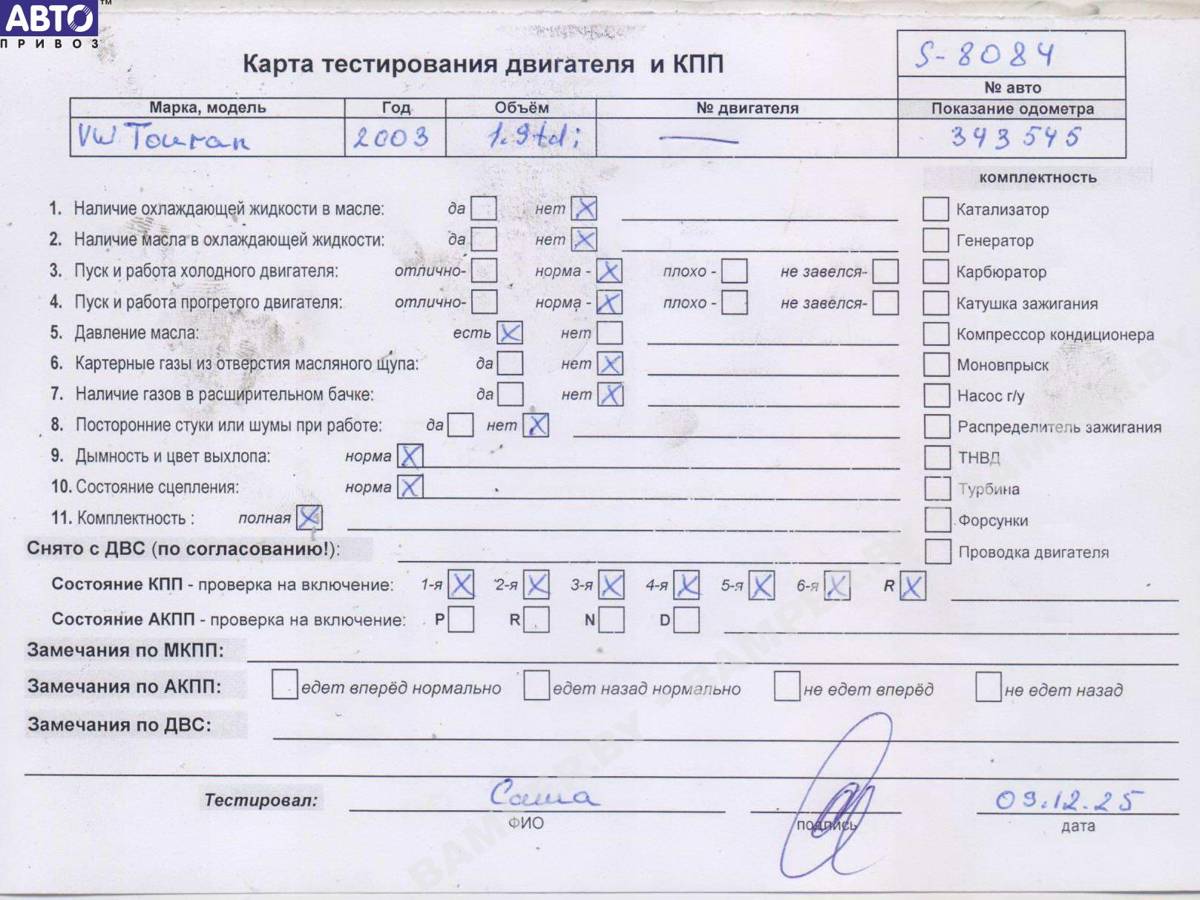 АВТО™
ПРИВОЗ
S-8084
Карта тестирования двигателя и КПП
№ авто
Марка, модель Год Объём № двигателя Показание одометра
VW Touran 2003 1.9tdi — 343545
комплектность
1. Наличие охлаждающей жидкости в масле: да нет X Катализатор
2. Наличие масла в охлаждающей жидкости: да нет X Генератор
3. Пуск и работа холодного двигателя: отлично- норма - X плохо - не завелся- Карбюратор
4. Пуск и работа прогретого двигателя: отлично- норма - X плохо - не завелся- Катушка зажигания
5. Давление масла: есть X нет Компрессор кондиционера
6. Картерные газы из отверстия масляного щупа: да нет X Моновпрыск
7. Наличие газов в расширительном бачке: да нет X Насос г/у
8. Посторонние стуки или шумы при работе: да нет X Распределитель зажигания
9. Дымность и цвет выхлопа: норма X ТНВД
10. Состояние сцепления: норма X Турбина
11. Комплектность : полная X Форсунки
Снято с ДВС (по согласованию!): Проводка двигателя
Состояние КПП - проверка на включение: 1-я X 2-я X 3-я X 4-я X 5-я X 6-я X R X
Состояние АКПП - проверка на включение: P R N D
Замечания по МКПП:
Замечания по АКПП: едет вперёд нормально едет назад нормально не едет вперёд не едет назад
Замечания по ДВС:
Тестировал: Саша 09.12.25
ФИО подпись дата
BAMPER.BY
BAMPER.BY
BAMPER.BY